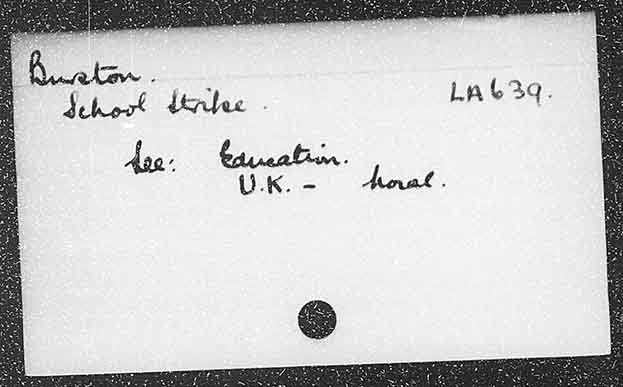 Burston.
School Strike.
LA639.
See: Education.
U.K. -